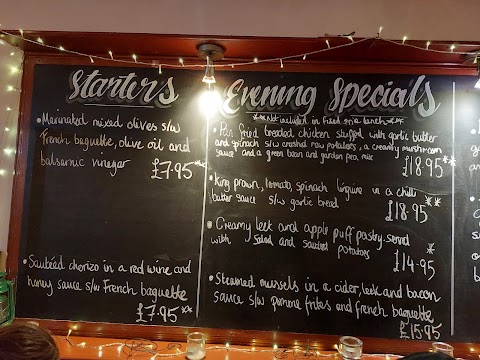 Starters
• Marinated mixed olives s/w
French baguette, olive oil and
balsamic vinegar
£7.95**
• Sautéed chorizo in a red wine and
honey sauce s/w French baguette
£7.95**
Evening Specials
*** Not included in Fixed price lunch ***
• Pan fried breaded chicken stuffed with garlic butter
and spinach s/w crushed new potatoes, a creamy mushroom
sauce and a green bean and garden pea mix
£18.95**
• King prawn, tomato, spinach linguine in a chilli
butter sauce s/w garlic bread
£18.95**
• Creamy leek and apple puff pastry served
with salad and sautéed potatoes
£14.95*
• Steamed mussels in a cider, leek and bacon
sauce s/w pomme frites and French baguette
£15.95**